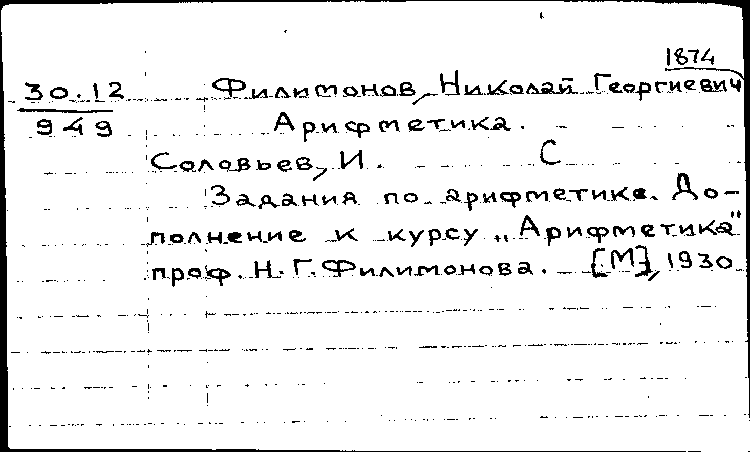 1874
30.12 Филимонов, Николай Георгиевич
949 Арифметика.
Соловьев, И. С
Задания по арифметике. До-
полнение к курсу „Арифметика"
проф. Н. Г. Филимонова. [М], 1930